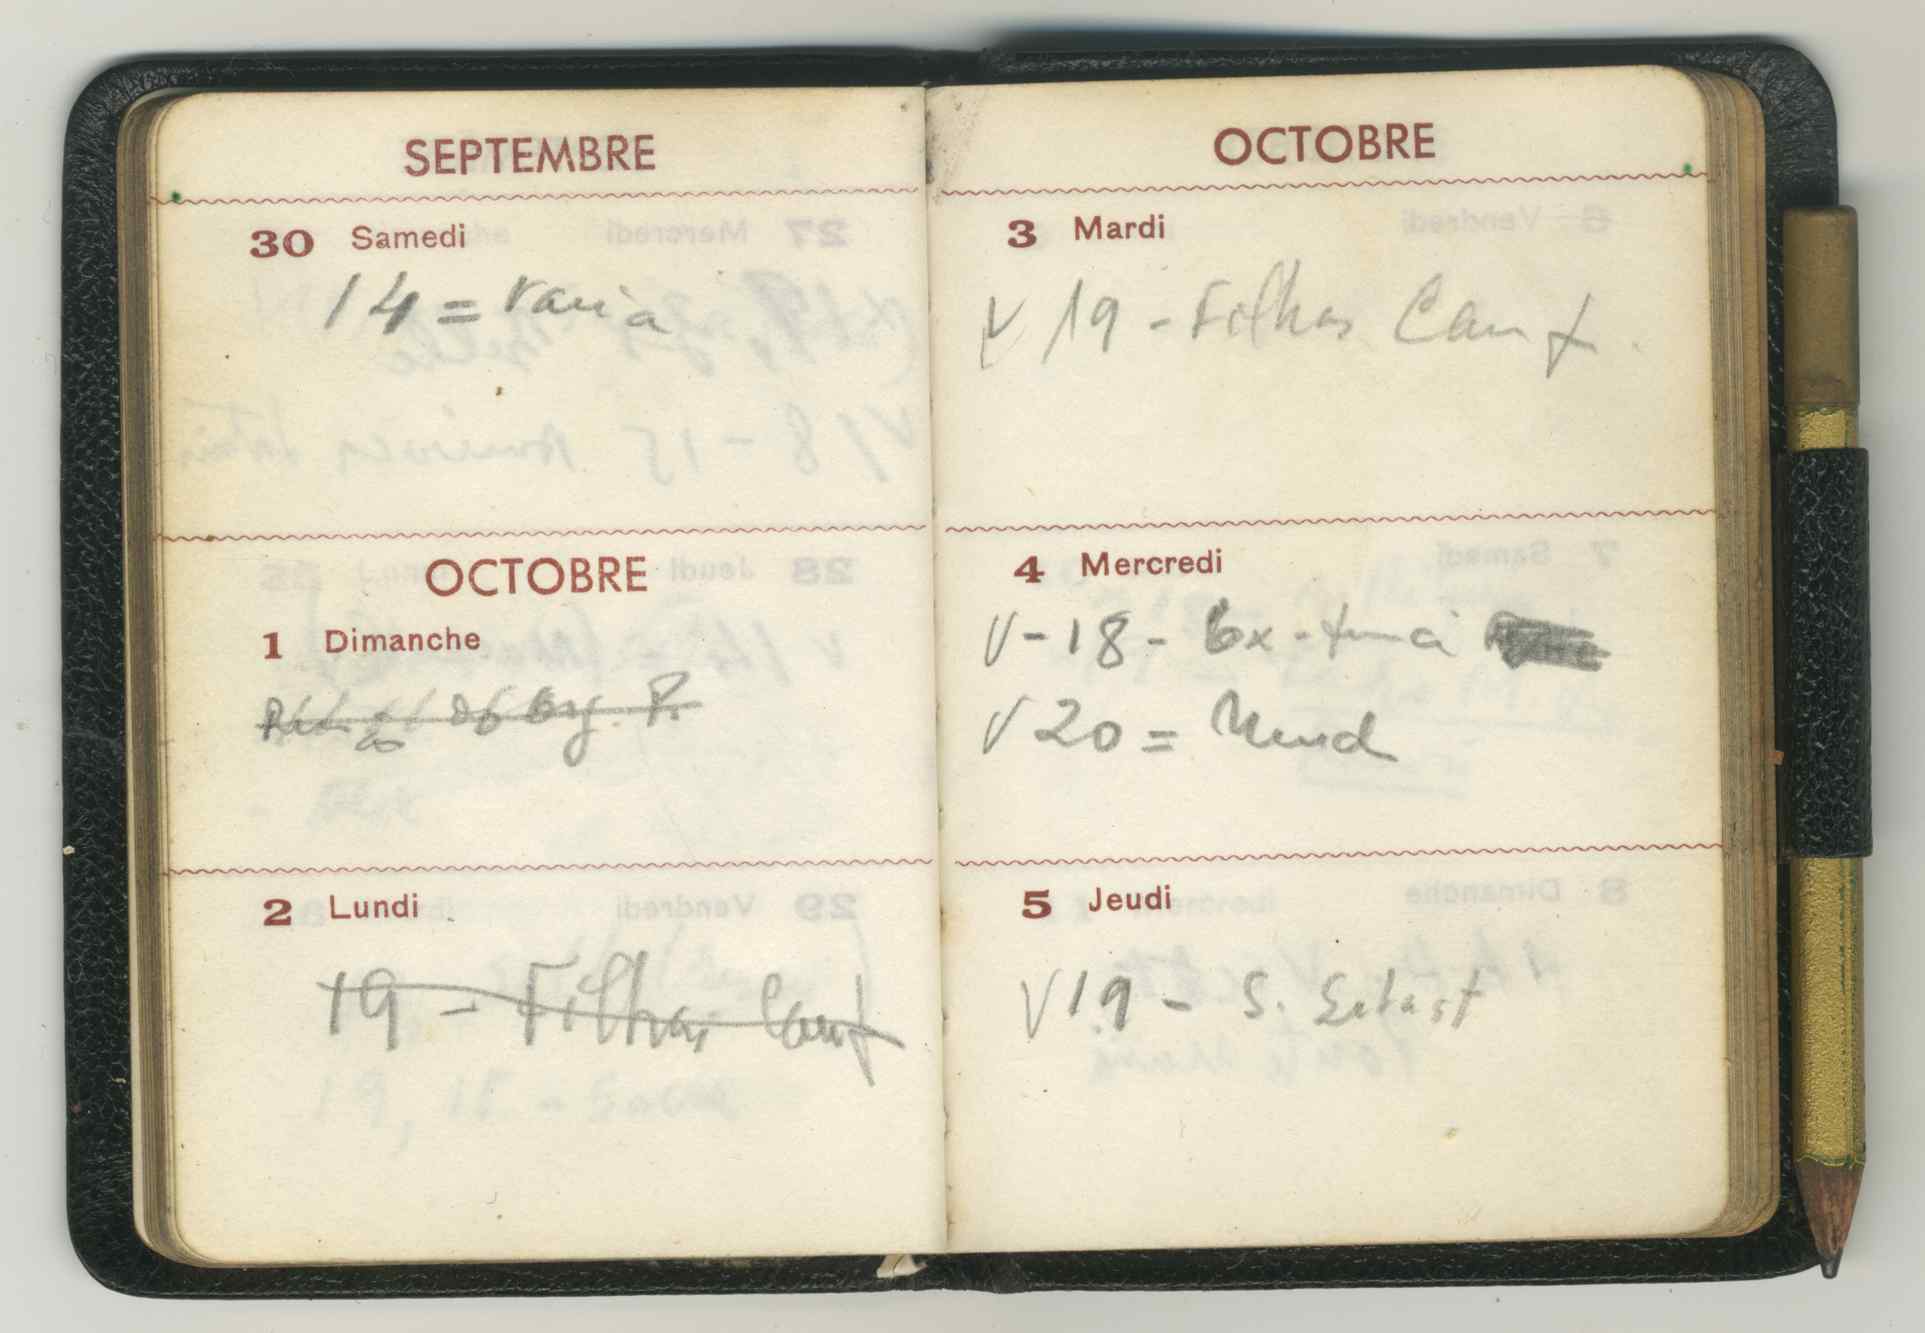 SEPTEMBRE
30 Samedi
14 = Varia
OCTOBRE
1 Dimanche
2 Lundi
19 - Filhas Camf
OCTOBRE
3 Mardi
V 19 - Filhas Camf.
4 Mercredi
V - 18 -
V 20 =
5 Jeudi
V 19 - S. Sebast